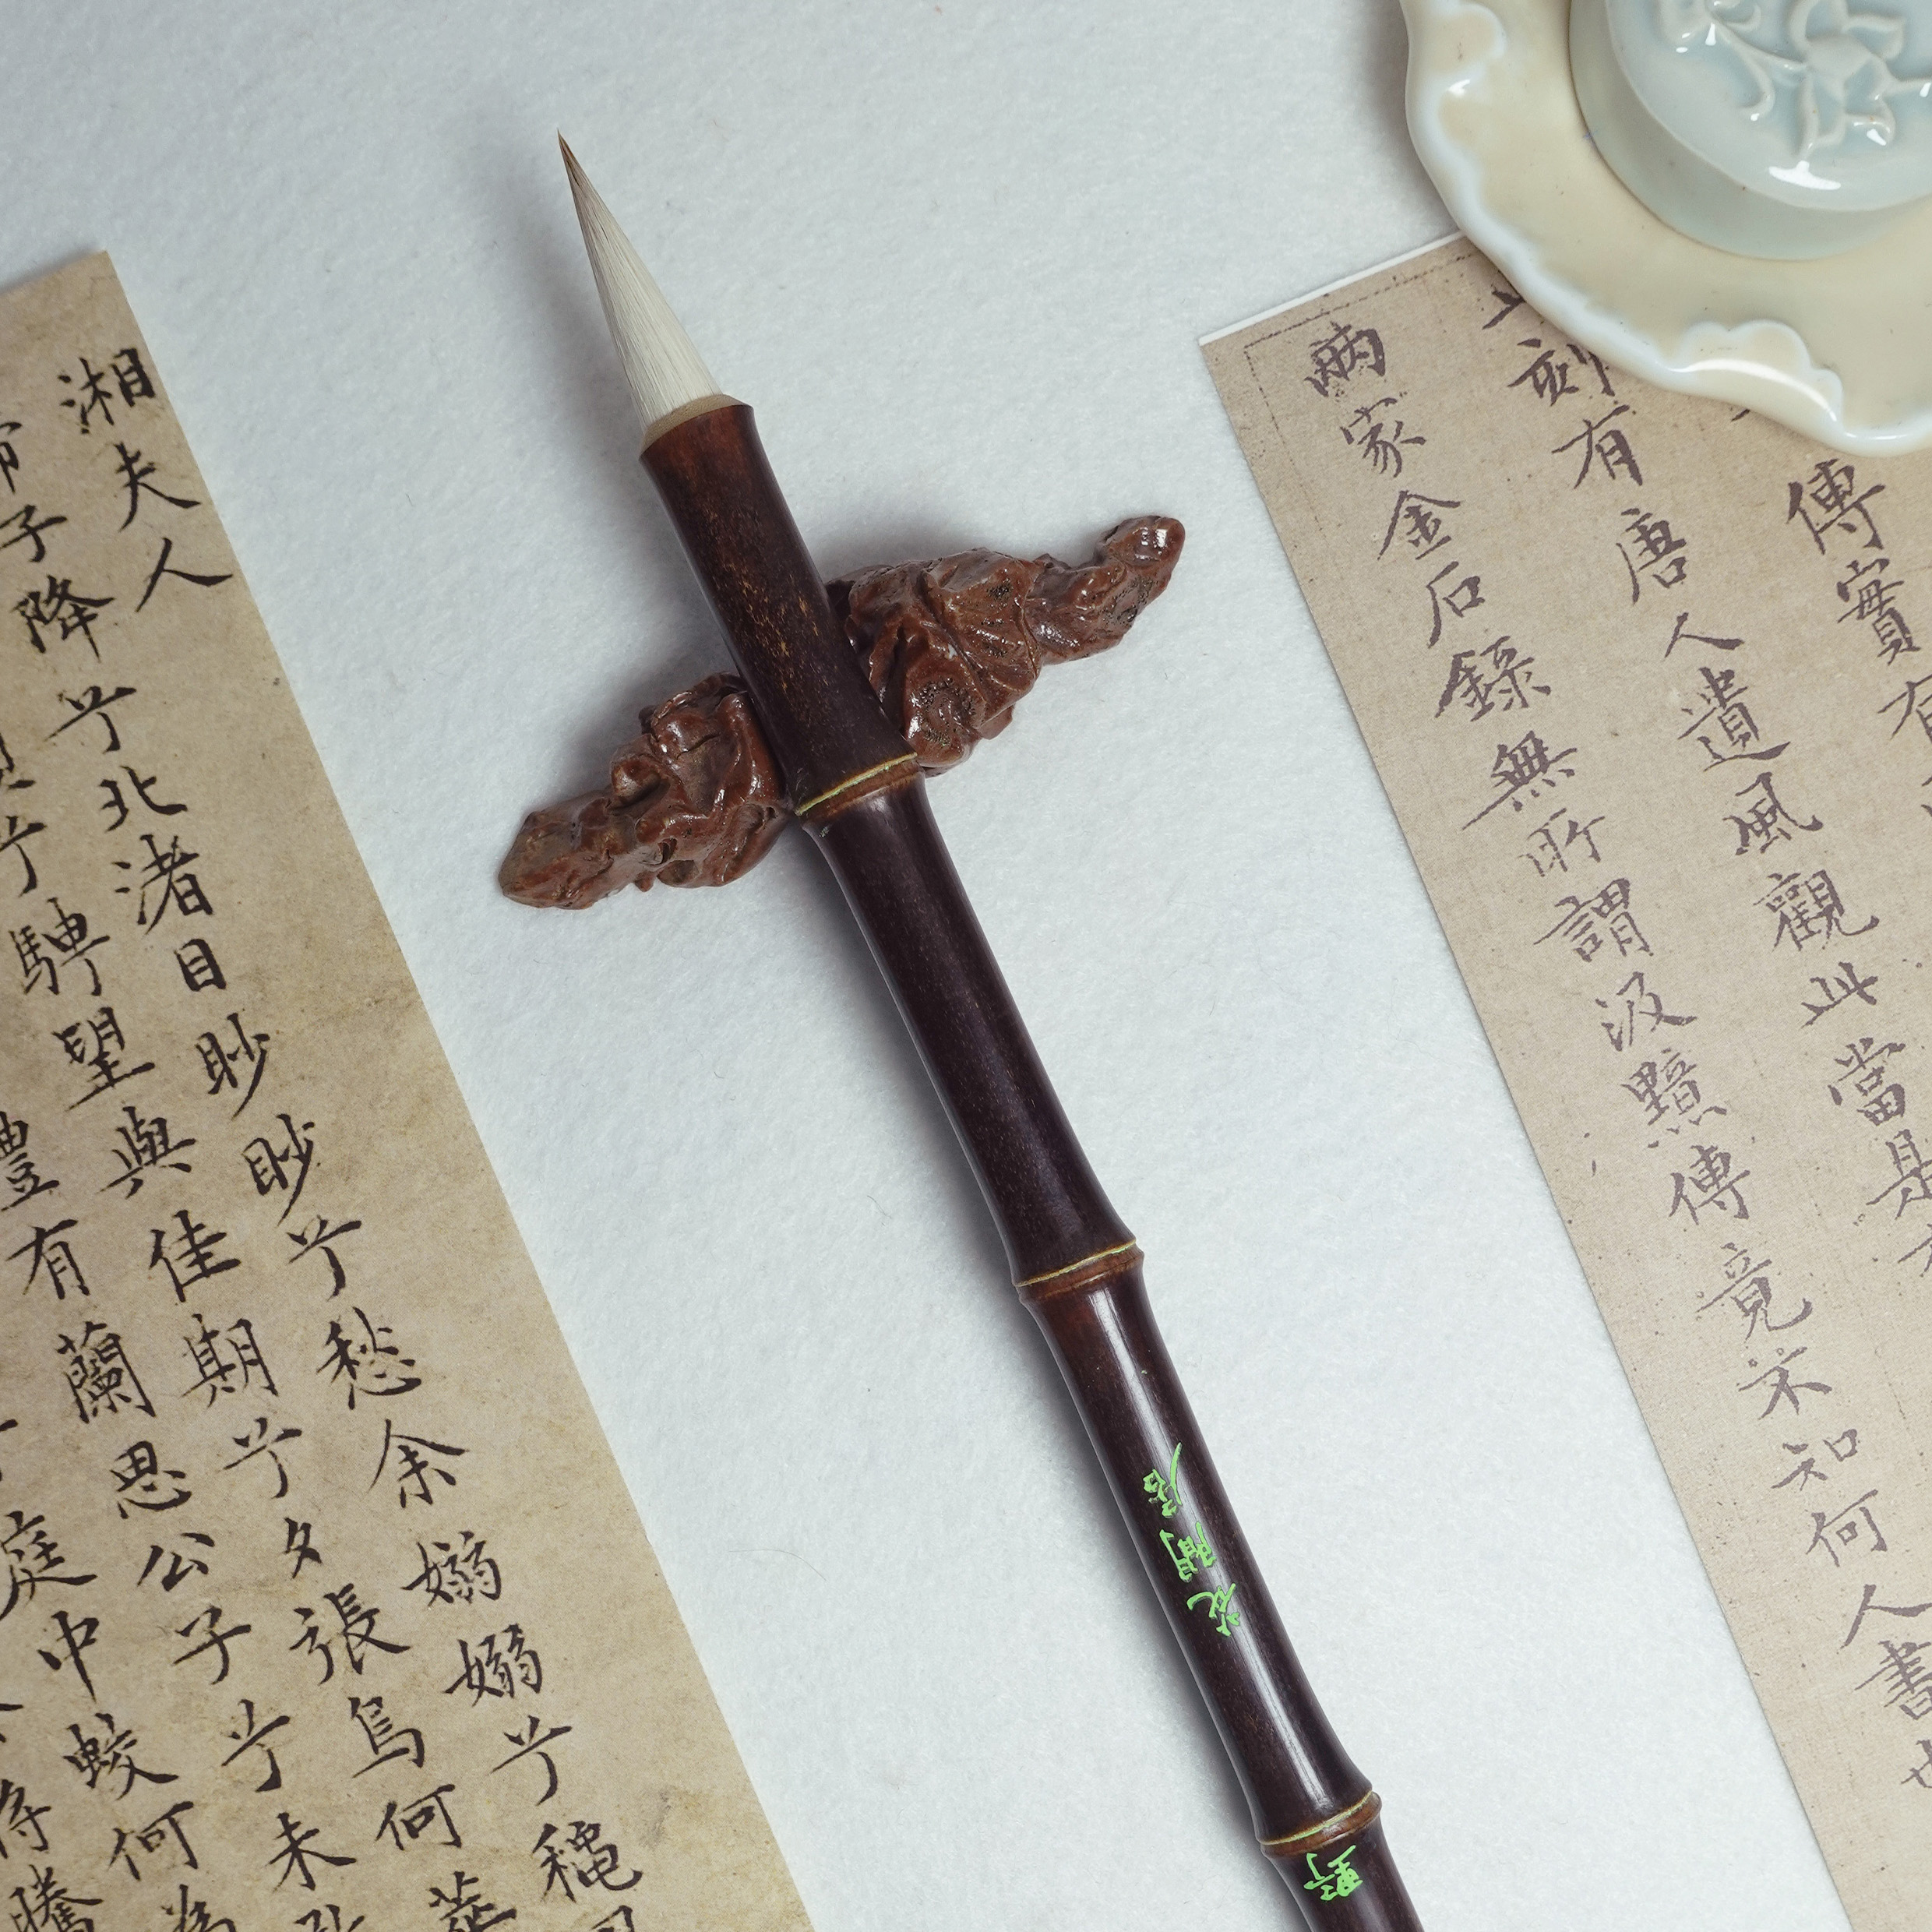 湘夫人
帝子降兮北渚目眇眇兮愁余嫋嫋兮穐
兮騁望與佳期兮夕張鳥何萃
醴有蘭思公子兮未
庭中蛟何為
將騰
傳實有
刻有唐人遺風觀此當是
兩家金石錄無所謂汲黯傳竟不知何人書也
野